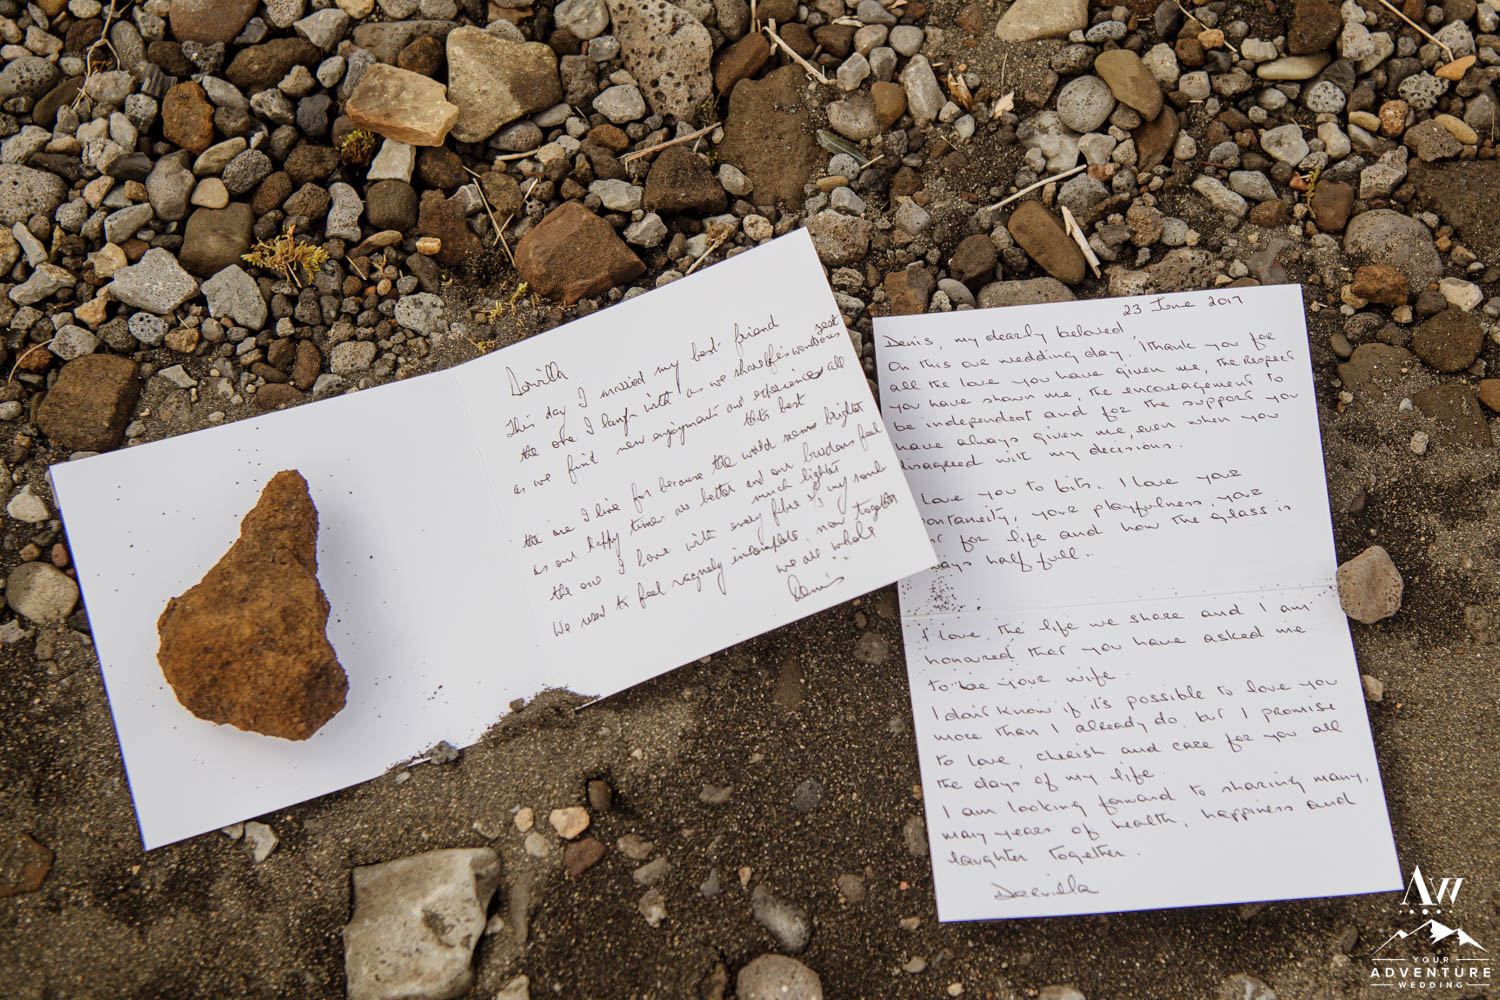 Dorvilla
This day I married my best friend
the one I laugh with as we share life's wondrous zest
as we find new enjoyments and experience all
that's best
the one I live for because the world seems brighter
as our happy times are better and our burdens feel
much lighter
the one I love with every fibre of my soul
We used to feel vaguely incomplete, now together
we are whole
Denis
23 June 2017
Denis, my dearly beloved,
On this our wedding day, I thank you for
all the love you have given me, the respect
you have shown me, the encouragement to
be independent and for the support you
have always given me, even when you
disagreed with my decisions.
love you to bits. I love your
ontaneity, your playfulness, your
for life and how the glass is
ways half full.
I love the life we share and I am
honoured that you have asked me
to be your wife.
I don't know if it's possible to love you
more than I already do, but I promise
to love, cherish and care for you all
the days of my life.
I am looking forward to sharing many,
many years of health, happiness and
laughter together.
Dorvilla
AW
YOUR
ADVENTURE
WEDDING